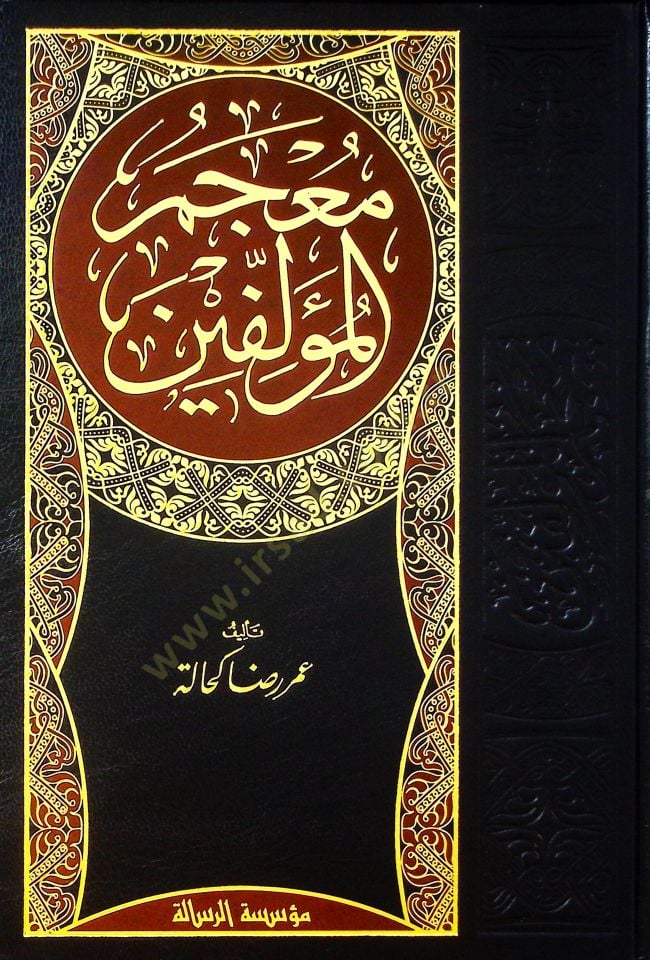 مُعْجَمُ
المُؤَلِّفِيْن
تأليف
عمر رضا كحالة
مؤسسة الرسالة